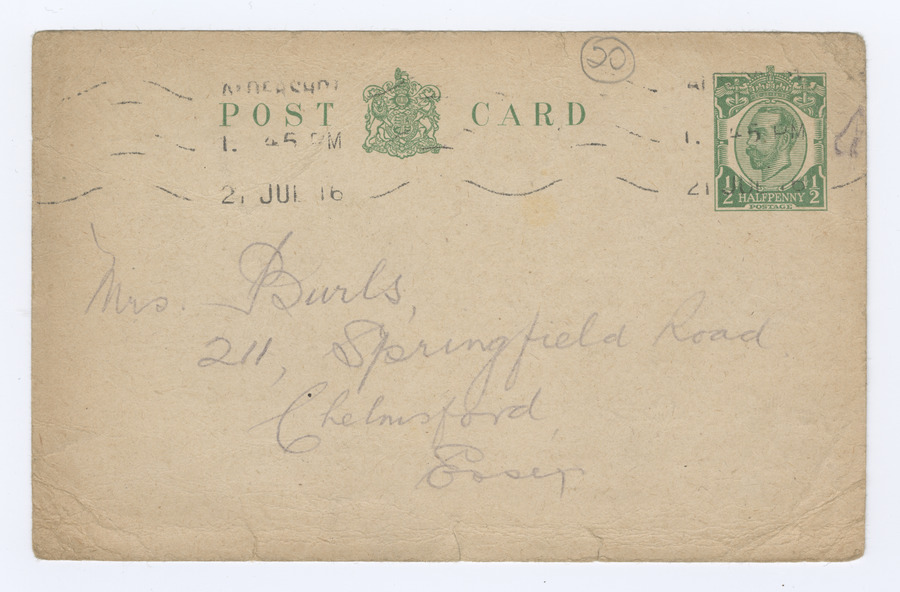 20
ALDERSHOT
POST CARD
1. 45 PM
1. 45 PM
21 JUL 16
21 JUL 16
1/2 HALFPENNY 1/2
POSTAGE
Mrs. Burls,
211, Springfield Road
Chelmsford
Essex